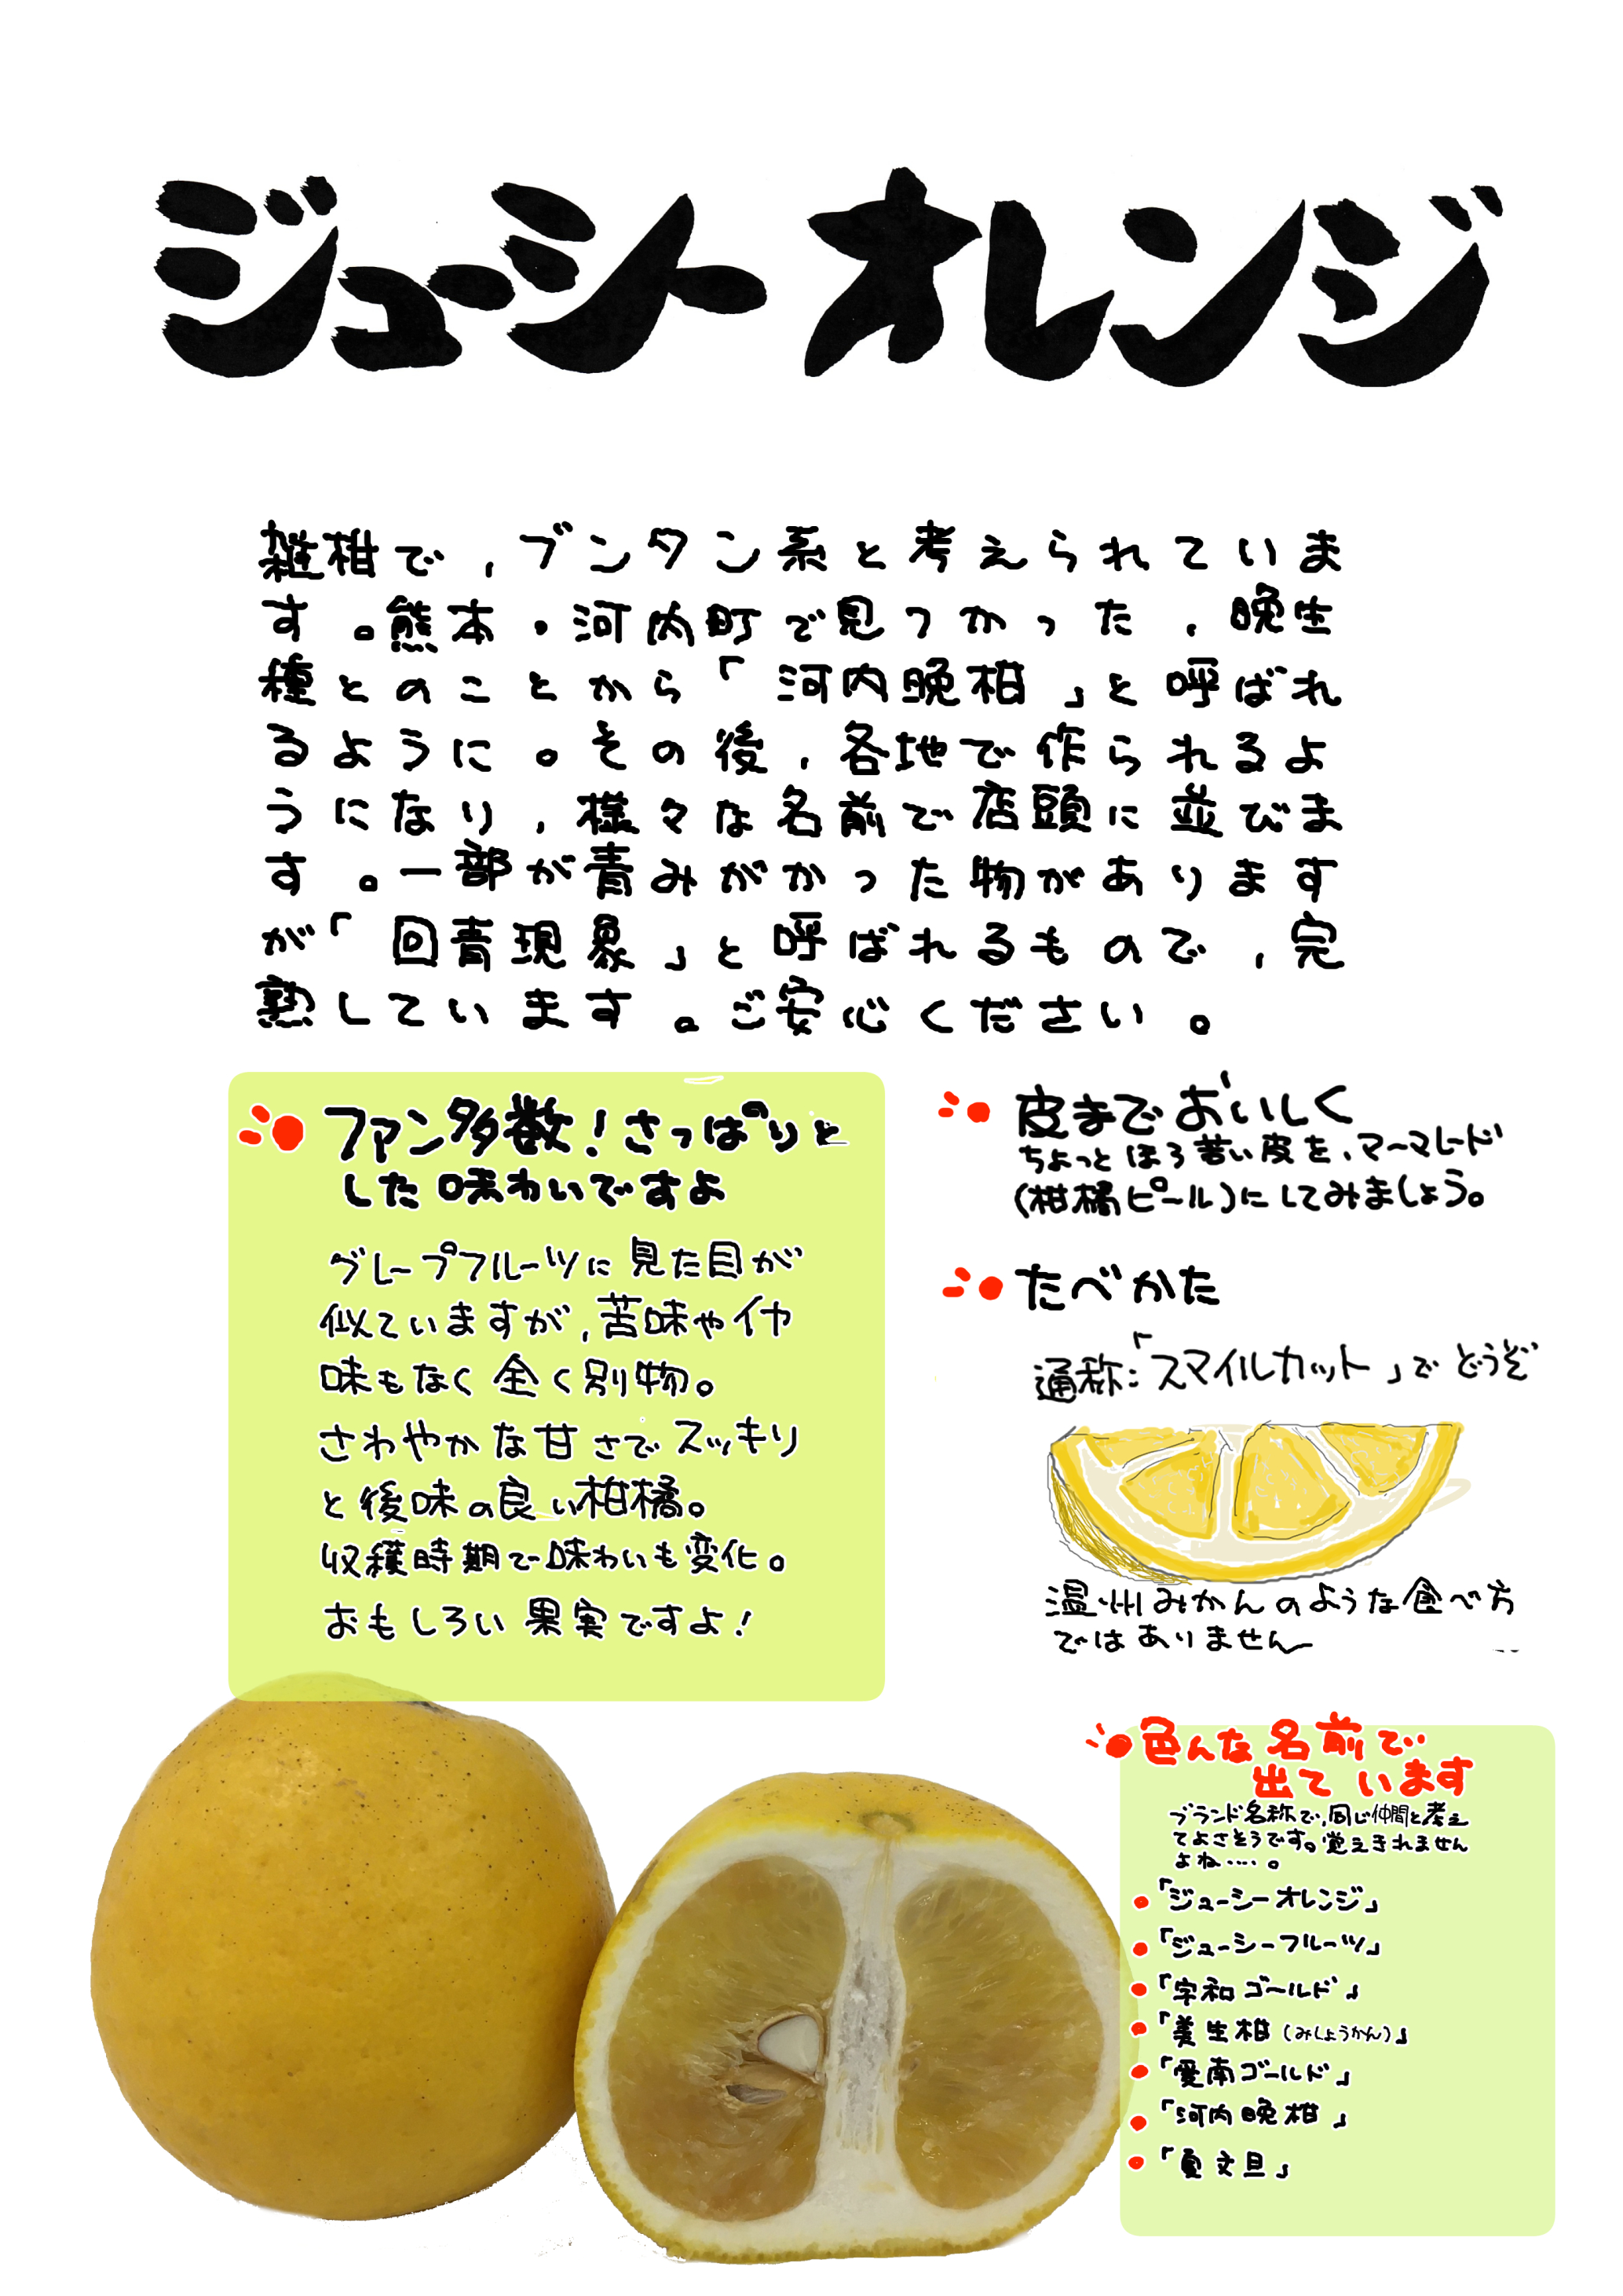 ジューシーオレンジ
雑柑で,ブンタン系と考えられていま
す。熊本・河内町で見つかった,晩生
種とのことから「河内晩柑」と呼ばれ
るように。その後,各地で作られるよ
うになり,様々な名前で店頭に並びま
す。一部が青みがかった物があります
が「回青現象」と呼ばれるもので,完
熟しています。ご安心ください。
ファン多数!さっぱりと
した味わいですよ
グレープフルーツに見た目が
似ていますが,苦味やイヤ
味もなく全く別物。
さわやかな甘さでスッキリ
と後味の良い柑橘。
収穫時期で味わいも変化。
おもしろい果実ですよ!
皮までおいしく
ちょっとほろ苦い皮を,マーマレード
(柑橘ピール)にしてみましょう。
たべかた
通称:「スマイルカット」でどうぞ
温州みかんのような食べ方
ではありません
色んな名前で
出ています
ブランド名称で,同じ仲間と考え
てよさそうです。覚えきれません
よね‥‥。
「ジューシーオレンジ」
「ジューシーフルーツ」
「宇和ゴールド」
「美生柑(みしょうかん)」
「愛南ゴールド」
「河内晩柑」
「夏文旦」